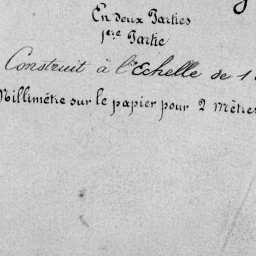 En deux Parties
1ère Partie
Construit à l'Echelle de 1
Millimétre sur le papier pour 2 Mètres